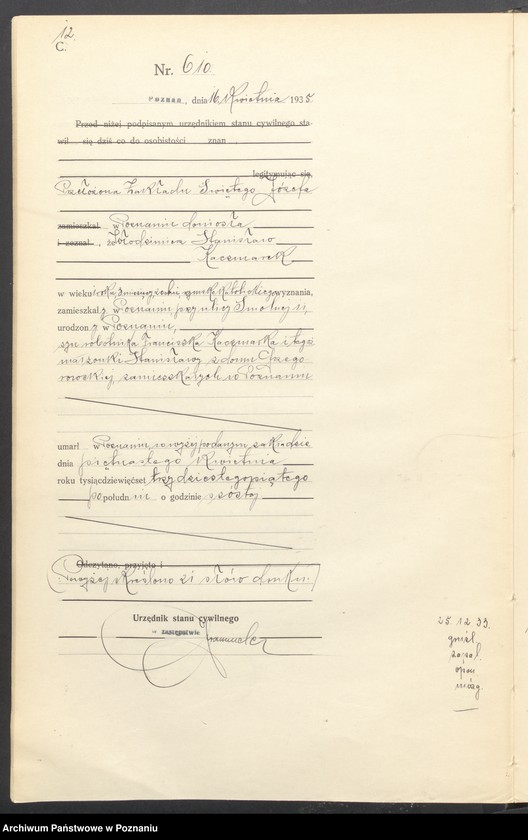 12
C.
Nr. 610
POZNAŃ, dnia 16 Kwietnia 1935
Przed niżej podpisanym urzędnikiem stanu cywilnego sta-
wił się dziś co do osobistości znan
legitymując się
Przełożona Zakładu Świętego Józefa
zamieszkał w Poznaniu doniosła
i zeznał , że Włodzimierz Stanisław
Kaczmarek
w wieku roku, rzymsko katolickiego wyznania,
zamieszkał w Poznaniu przy ulicy Smolnej 11,
urodzon y w Poznaniu,
syn robotnika Franciszka Kaczmarka i tegoż
małżonki Stanisławy z domu
zamieszkałych w Poznaniu
umarł w Poznaniu, w wyżej podanym zakładzie
dnia piętnastego Kwietnia
roku tysiącdziewięćset trzydziestegopiątego
po połudn iu o godzinie szóstej
Odczytano, przyjęto i
Powyżej skreślono 21 słów druku
Urzędnik stanu cywilnego
w zastępstwie
25.12.33
gruźl.
zapal.
opon
mózg.
Archiwum Państwowe w Poznaniu